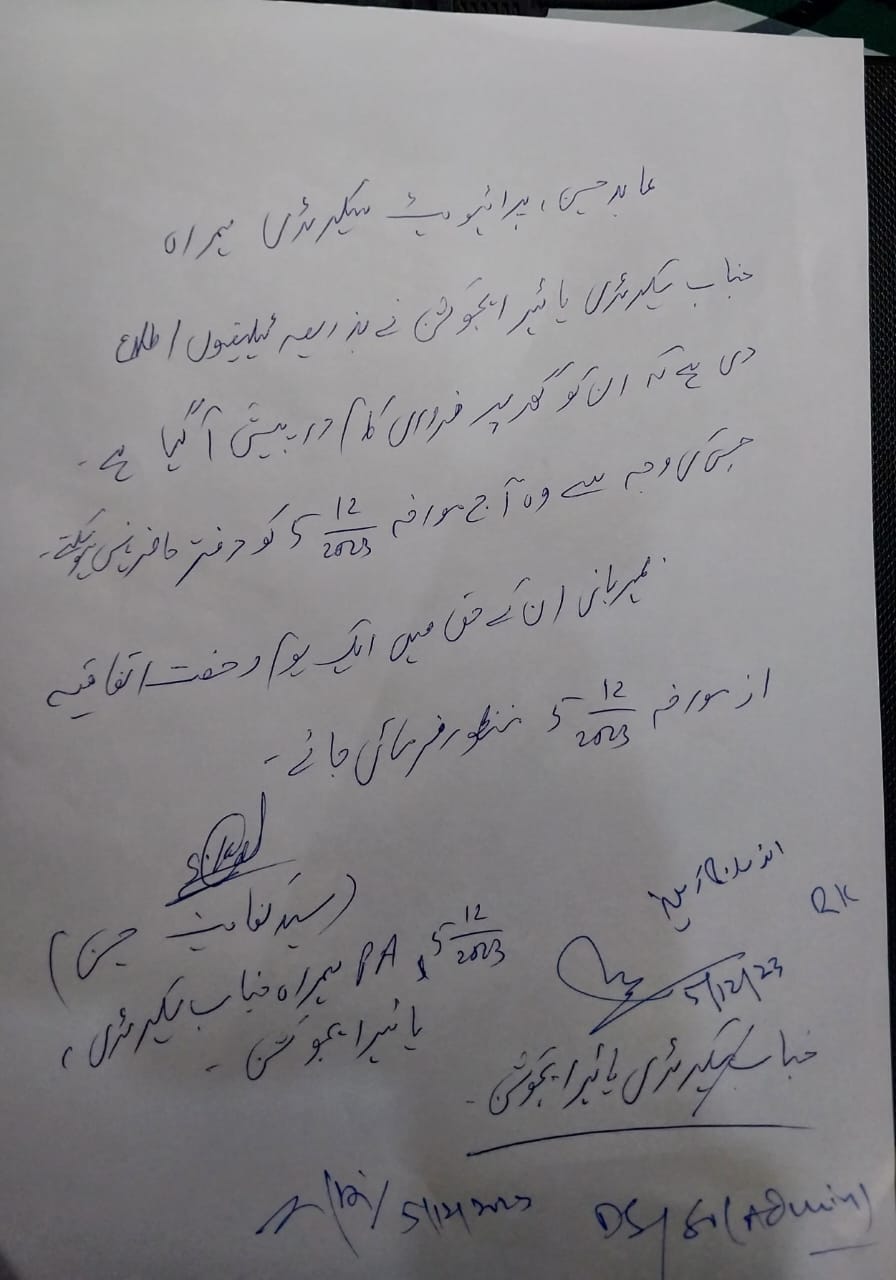 عابد حسین، پرائیویٹ سیکریٹری ہمراہ
جناب سیکریٹری ہائیر ایجوکیشن نے بذریعہ ٹیلیفون اطلاع
دی ہے کہ ان کو گھر پر ضروری کام درپیش آ گیا ہے۔
جس کی وجہ سے وہ آج مورخہ 5 12/2023 کو دفتر حاضر نہیں ہو سکتے۔
بمہربانی ان کے حق میں ایک یوم رخصت اتفاقیہ
از مورخہ 5 12/2023 منظور فرمائی جائے۔
(سید کفایت حسین)
5 12/2023
PA ہمراہ جناب سیکریٹری،
ہائیر ایجوکیشن۔
RK
5/12/23
جناب سیکریٹری ہائیر ایجوکیشن۔
5/12/2023
DS/SO (Admin)